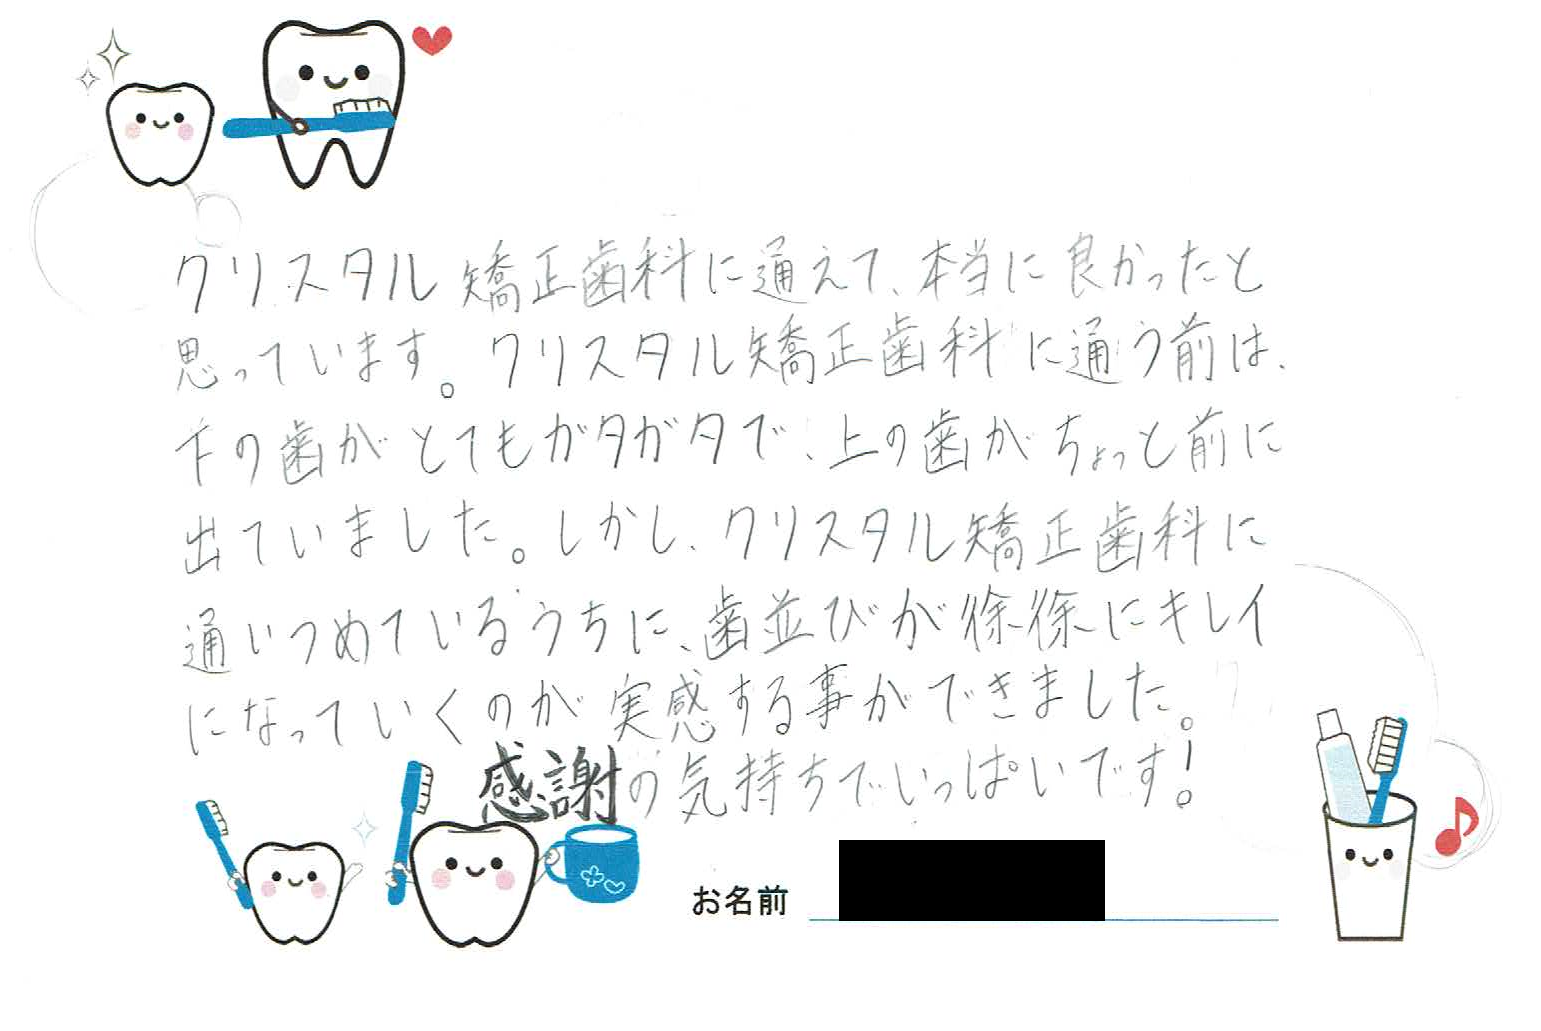 クリスタル矯正歯科に通えて、本当に良かったと
思っています。クリスタル矯正歯科に通う前は、
下の歯がとてもガタガタで、上の歯がちょっと前に
出ていました。しかし、クリスタル矯正歯科に
通いつめているうちに、歯並びが徐徐にキレイ
になっていくのが実感する事ができました。
感謝の気持ちでいっぱいです！
お名前